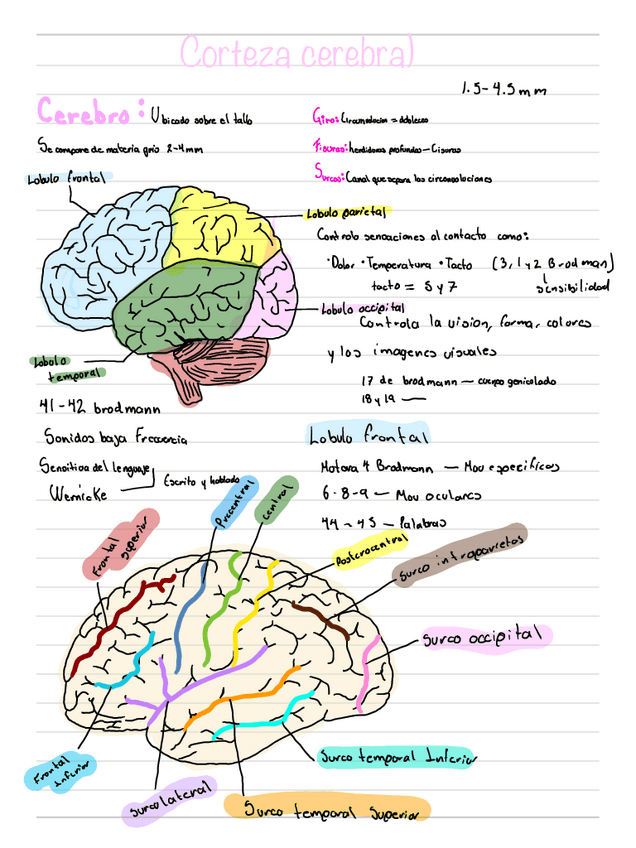 Corteza cerebral
1.5-4.5mm
Cerebro: Ubicado sobre el tallo
Giro: Circunvolucion = dobleces
Se compone de materia gris 2-4mm
Fisuras: hendiduras profundas - Cisuras
Surcos: Canal que separa las circonvoluciones
Lobulo frontal
Lobulo parietal
Controla sensaciones al contacto como:
·Dolor ·Temperatura ·Tacto (3, 1 y 2 Brodman)
tacto = 5 y 7
sensibilidad
Lobulo occipital
Controla la vision, forma, colores
y las imagenes visuales
Lobulo
temporal
17 de brodmann — cuerpo geniculado
18 y 19 —
41-42 brodmann
Sonidos baja Frecuencia
Lobulo frontal
Sensitiva del lenguaje
Escrito y hablado
Wernicke
Motora 4 Brodmann — Mov especificos
6-8-9 — Mov oculares
44-45 — Palabras
Frontal
superior
Precentral
Central
Postcrocentral
Surco intraparietas
Surco occipital
Frontal
Inferior
Surco lateral
Surco temporal Inferior
Surco temporal Superior